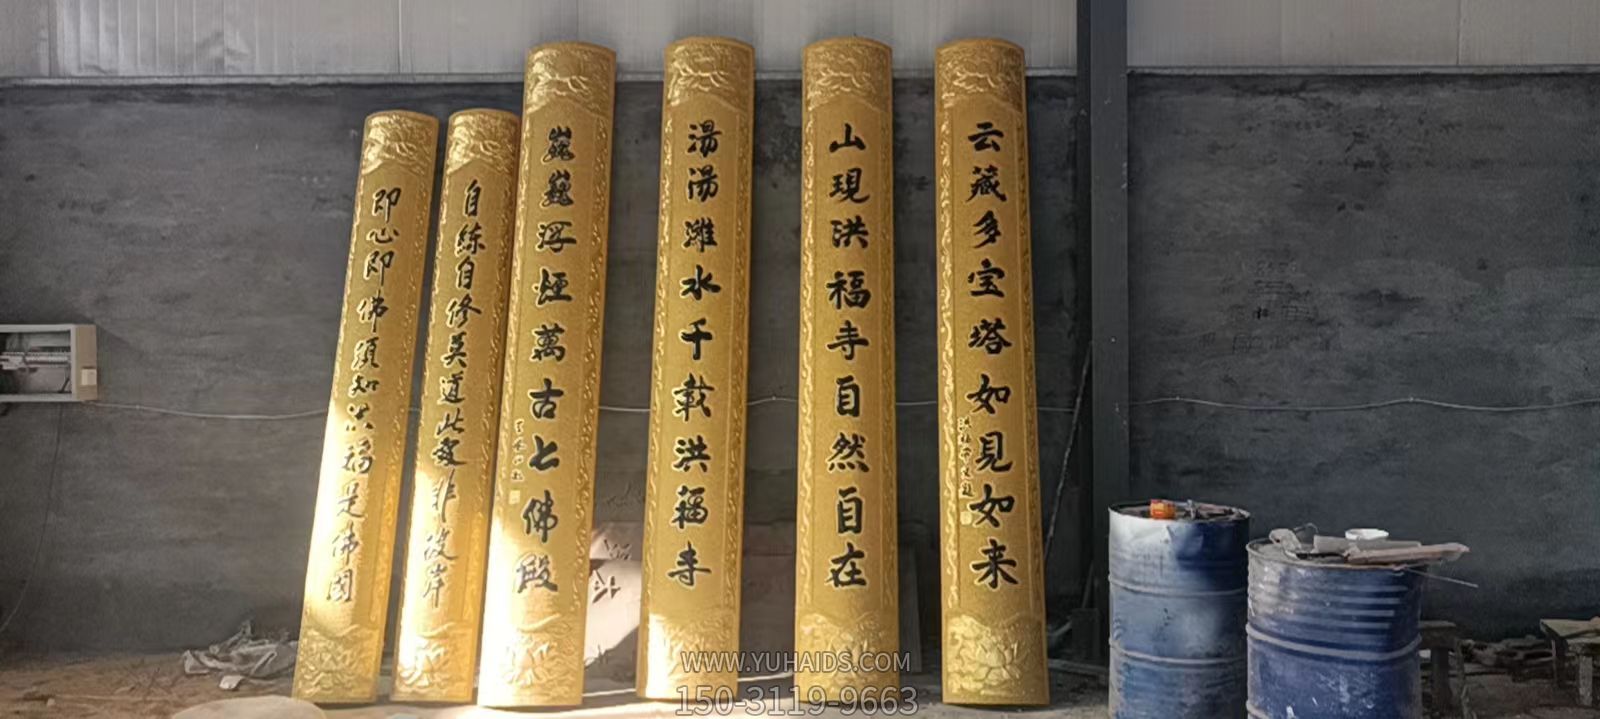 即心即佛須知洪福是佛国
自练自修莫道此处非彼岸
巍巍浮煙萬古七佛殿
湯湯濰水千载洪福寺
山現洪福寺自然自在
云藏多宝塔如見如来
WWW.YUHAIDS.COM
150-3119-9663